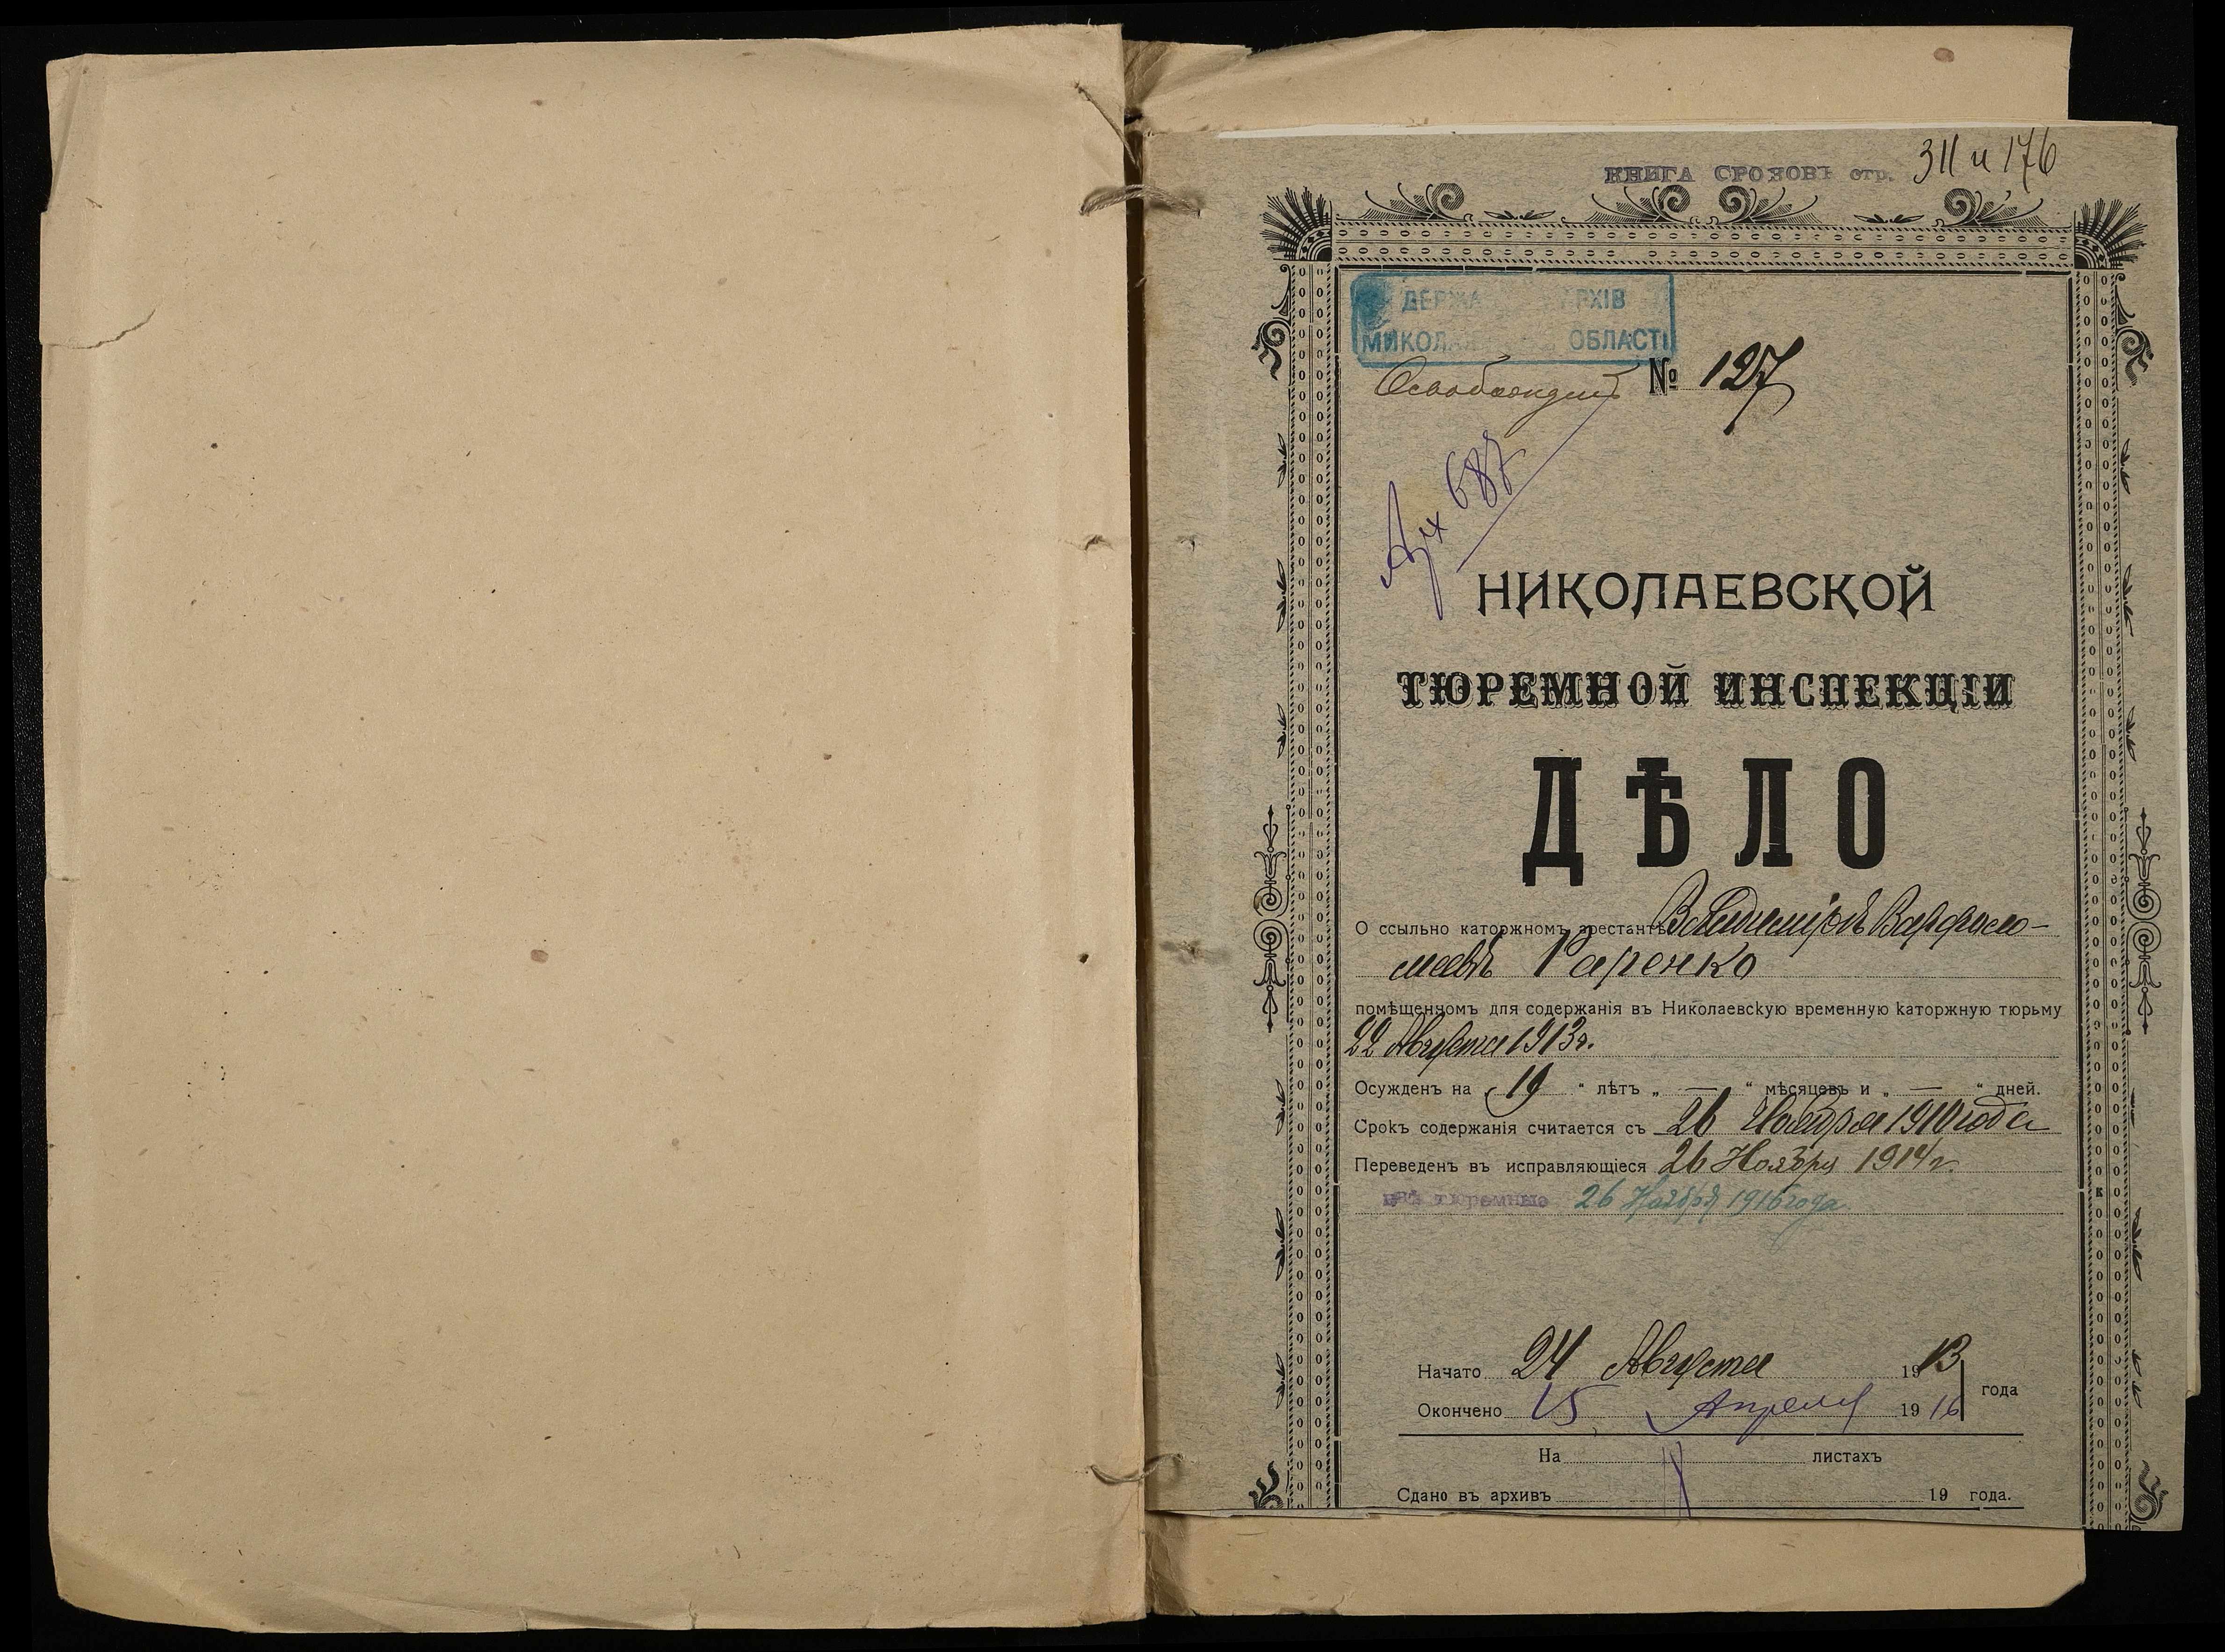 КНИГА СРОКОВЪ стр. 311 и 176
ДЕРЖА РХІВ
МИКОЛА ОБЛАСТІ
Освобожденъ № 127
Арх 687
НИКОЛАЕВСКОЙ
ТЮРЕМНОЙ ИНСПЕКЦІИ
ДѢЛО
О ссыльно каторжномъ арестантѣ Владимірѣ Варфоло-
меевѣ Чаренко
помѣщенномъ для содержанія въ Николаевскую временную каторжную тюрьму
22 Августа 1913 г.
Осужденъ на „ 19 “ лѣтъ „ — “ мѣсяцевъ и „ — “ дней.
Срокъ содержанія считается съ 26 Ноября 1910 года
Переведенъ въ исправляющіеся 26 Ноября 1914 г.
внѣ тюремные 26 Ноября 1916 года
Начато 24 Августа 1913
года
Окончено 15 Апреля 1916
На листахъ
Сдано въ архивъ 19 года.